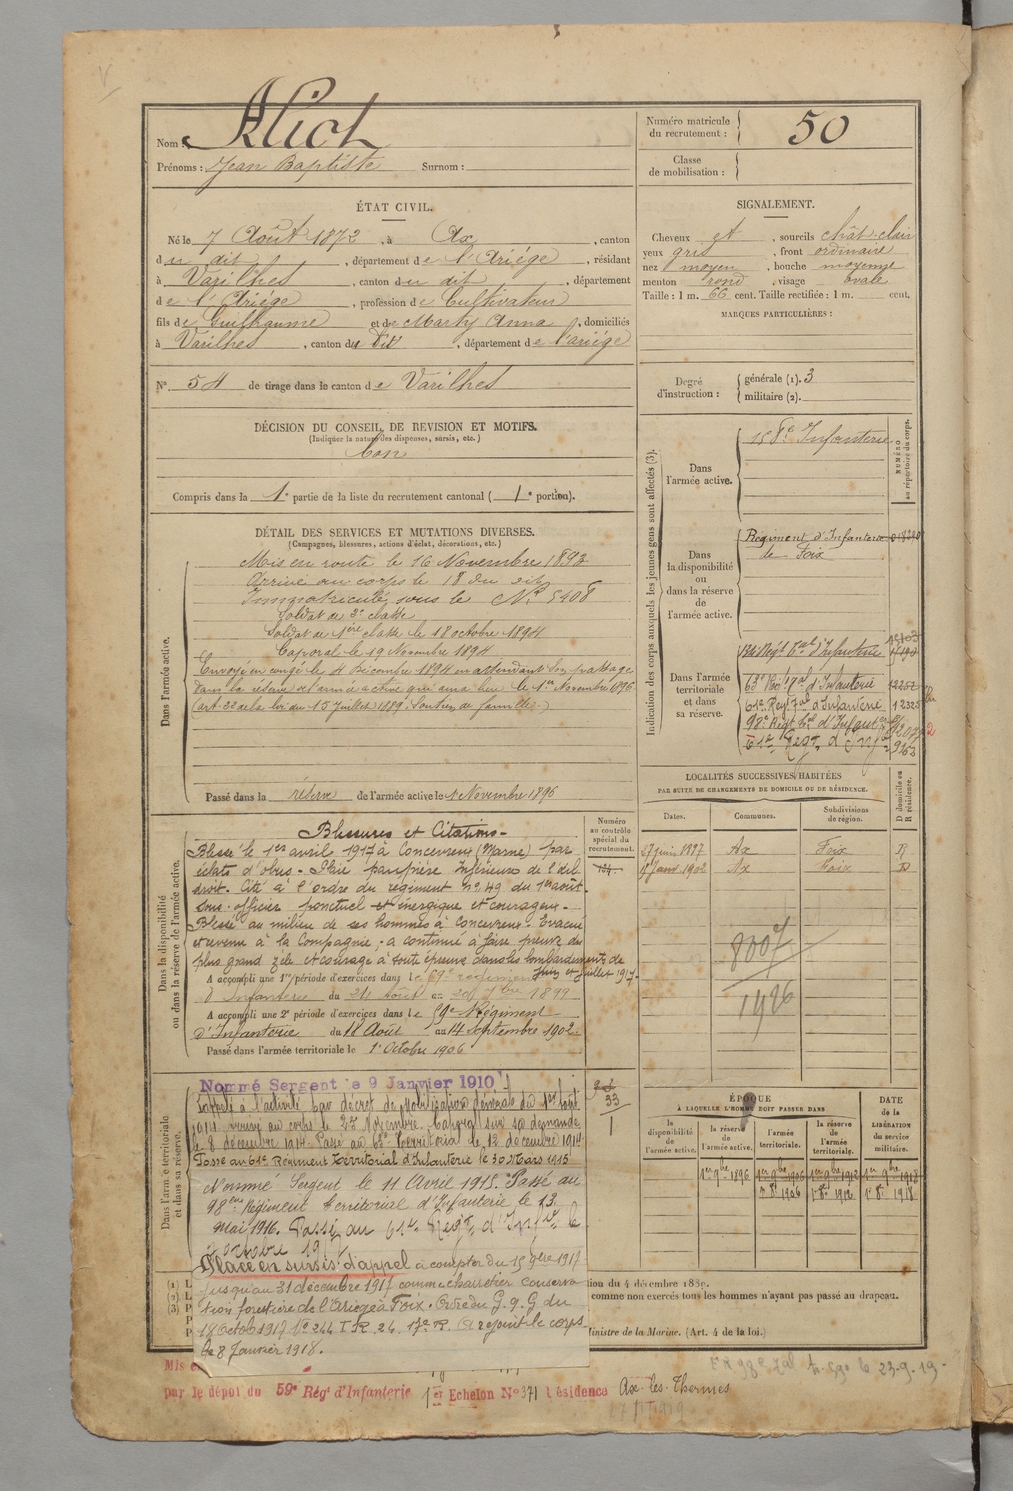 Nom : Alict
Prénoms : Jean Baptiste Surnom :
Numéro matricule du recrutement : 50
Classe de mobilisation :
ÉTAT CIVIL.
Né le 7 Août 1872, à Ax, canton
du dit, département de l'Ariége, résidant
à Varilhes, canton du dit, département
de l'Ariége, profession de Cultivateur
fils de Guilhaume et de Marty Anna, domiciliés
à Varilhes, canton du Dit, département de l'ariége
N° 54 de tirage dans le canton de Varilhes
SIGNALEMENT.
Cheveux et, sourcils chât. clair
yeux gris, front ordinaire
nez moyen, bouche moyenne
menton rond, visage ovale
Taille : 1 m. 66 cent. Taille rectifiée : 1 m. cent.
MARQUES PARTICULIÈRES :
Degré d'instruction : générale (1). 3
militaire (2).
DÉCISION DU CONSEIL DE REVISION ET MOTIFS.
(Indiquer la nature des dispenses, sursis, etc.)
bon
Compris dans la 1e partie de la liste du recrutement cantonal (1e portion).
DÉTAIL DES SERVICES ET MUTATIONS DIVERSES.
(Campagnes, blessures, actions d'éclat, décorations, etc.)
Dans l'armée active.
Mis en route le 16 Novembre 1893
Arrivé au corps le 18 du dit
Immatriculé sous le N° 5408
Soldat de 2e classe
Soldat de 1ère classe le 18 octobre 1894
Caporal le 19 Novembre 1894
Envoyé en congé le 4 Décembre 1894 en attendant son passage
dans la réserve de l'armée active qui aura lieu le 1er Novembre 1896
(art. 22 de la loi du 15 Juillet 1889. Soutien de famille.)
Passé dans la réserve de l'armée active le 1 Novembre 1896
Indication des corps auxquels les jeunes gens sont affectés (3).
NUMÉRO au répertoire du corps.
Dans l'armée active.
158e Infanterie
Dans la disponibilité ou dans la réserve de l'armée active.
Régiment d'Infanterie
de Foix
Dans l'armée territoriale et dans sa réserve.
134 Régt Tal d'Infanterie
63e Régt Tal d'Infanterie 12252
61e Regt Tal d'Infanterie 12325
98e Régt Tal d'Infanterie
61e Regt d'Infie 9263
LOCALITÉS SUCCESSIVES HABITÉES
PAR SUITE DE CHANGEMENTS DE DOMICILE OU DE RÉSIDENCE.
Dates. Communes. Subdivisions de région. D domicile ou R résidence.
27 juin 1897 Ax Foix D
17 Janv 1902 Ax Foix D
8007
1926
Numéro au contrôle spécial du recrutement.
Dans la disponibilité ou dans la réserve de l'armée active.
Blessures et Citations -
Blessé le 1er avril 1917 à Concevreux (Marne) par
éclats d'obus - Plaie paupière Inférieure de l'œil
droit. Cité à l'ordre du régiment n° 49 du 1er août.
sous-officier ponctuel et énergique et courageux -
Blessé au milieu de ses hommes à Concevreux. Evacué
et revenu à la Compagnie, a continué à faire preuve du
plus grand zèle et courage à toute épreuve dans les bombardements de
Juin et Juillet 1917 -
A accompli une 1re période d'exercices dans le 59e régiment
d'Infanterie du 24 Août au 20 7bre 1899
A accompli une 2e période d'exercices dans le 59e Régiment
d'Infanterie du 18 Août au 14 Septembre 1902
Passé dans l'armée territoriale le 1er Octobre 1906
Dans l'armée territoriale et dans sa réserve.
Nommé Sergent le 9 Janvier 1910
Rappelé à l'activité par décret de Mobilisation générale du 1er Août
1914 arrivé au corps le 23 Novembre. Caporal sur sa demande
le 8 décembre 1914. Passé au 63e territorial le 12 décembre 1914
Passé au 61e Régiment territorial d'Infanterie le 30 Mars 1915
Nommé Sergent le 11 Avril 1915. Passé au
98ème Régiment territorial d'Infanterie le 13
Mai 1916. Passé au 61e Regt d'Infie le
octobre 191
Placé en sursis d'appel à compter du 15 9bre 1917
jusqu'au 31 décembre 1917 comme charretier conserva
tion forestière de l'Ariège à Foix. Ordre du G.Q.G du
18 Octob 1917 N° 244 T R 24. 17e R. A rejoint le corps
le 8 Janvier 1918.
33
ÉPOQUE
À LAQUELLE L'HOMME DOIT PASSER DANS
DATE de la LIBÉRATION du service militaire.
la disponibilité de l'armée active. la réserve de l'armée active. l'armée territoriale. la réserve de l'armée territoriale.
1er 9bre 1896 1er 9bre 1906 1er 9bre 1912 1er 9bre 1918
1er 8bre 1906 1er 8bre 1912 1er 8bre 1918
(1) L
(2) L
(3) P
ion du 4 décembre 1889.
comme non exercés tous les hommes n'ayant pas passé au drapeau.
Ministre de la Marine. (Art. 4 de la loi.)
Mis e
par le dépôt du 59e Régt d'Infanterie 1er Echelon N° 371 Résidence Ax-les-Thermes